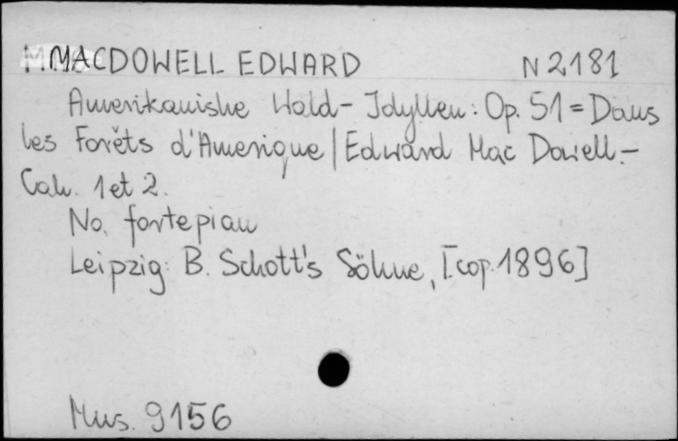 MACDOWELL EDWARD N 2181
Amerikanishe Wald-Idyllen: Op. 51 = Dans
les Forêts d'Amerique / Edward Mac Dowell.-
Cah. 1 et 2.
Na fortepian
Leipzig: B. Schott's Söhne, [cop. 1896]
Mus. 9156